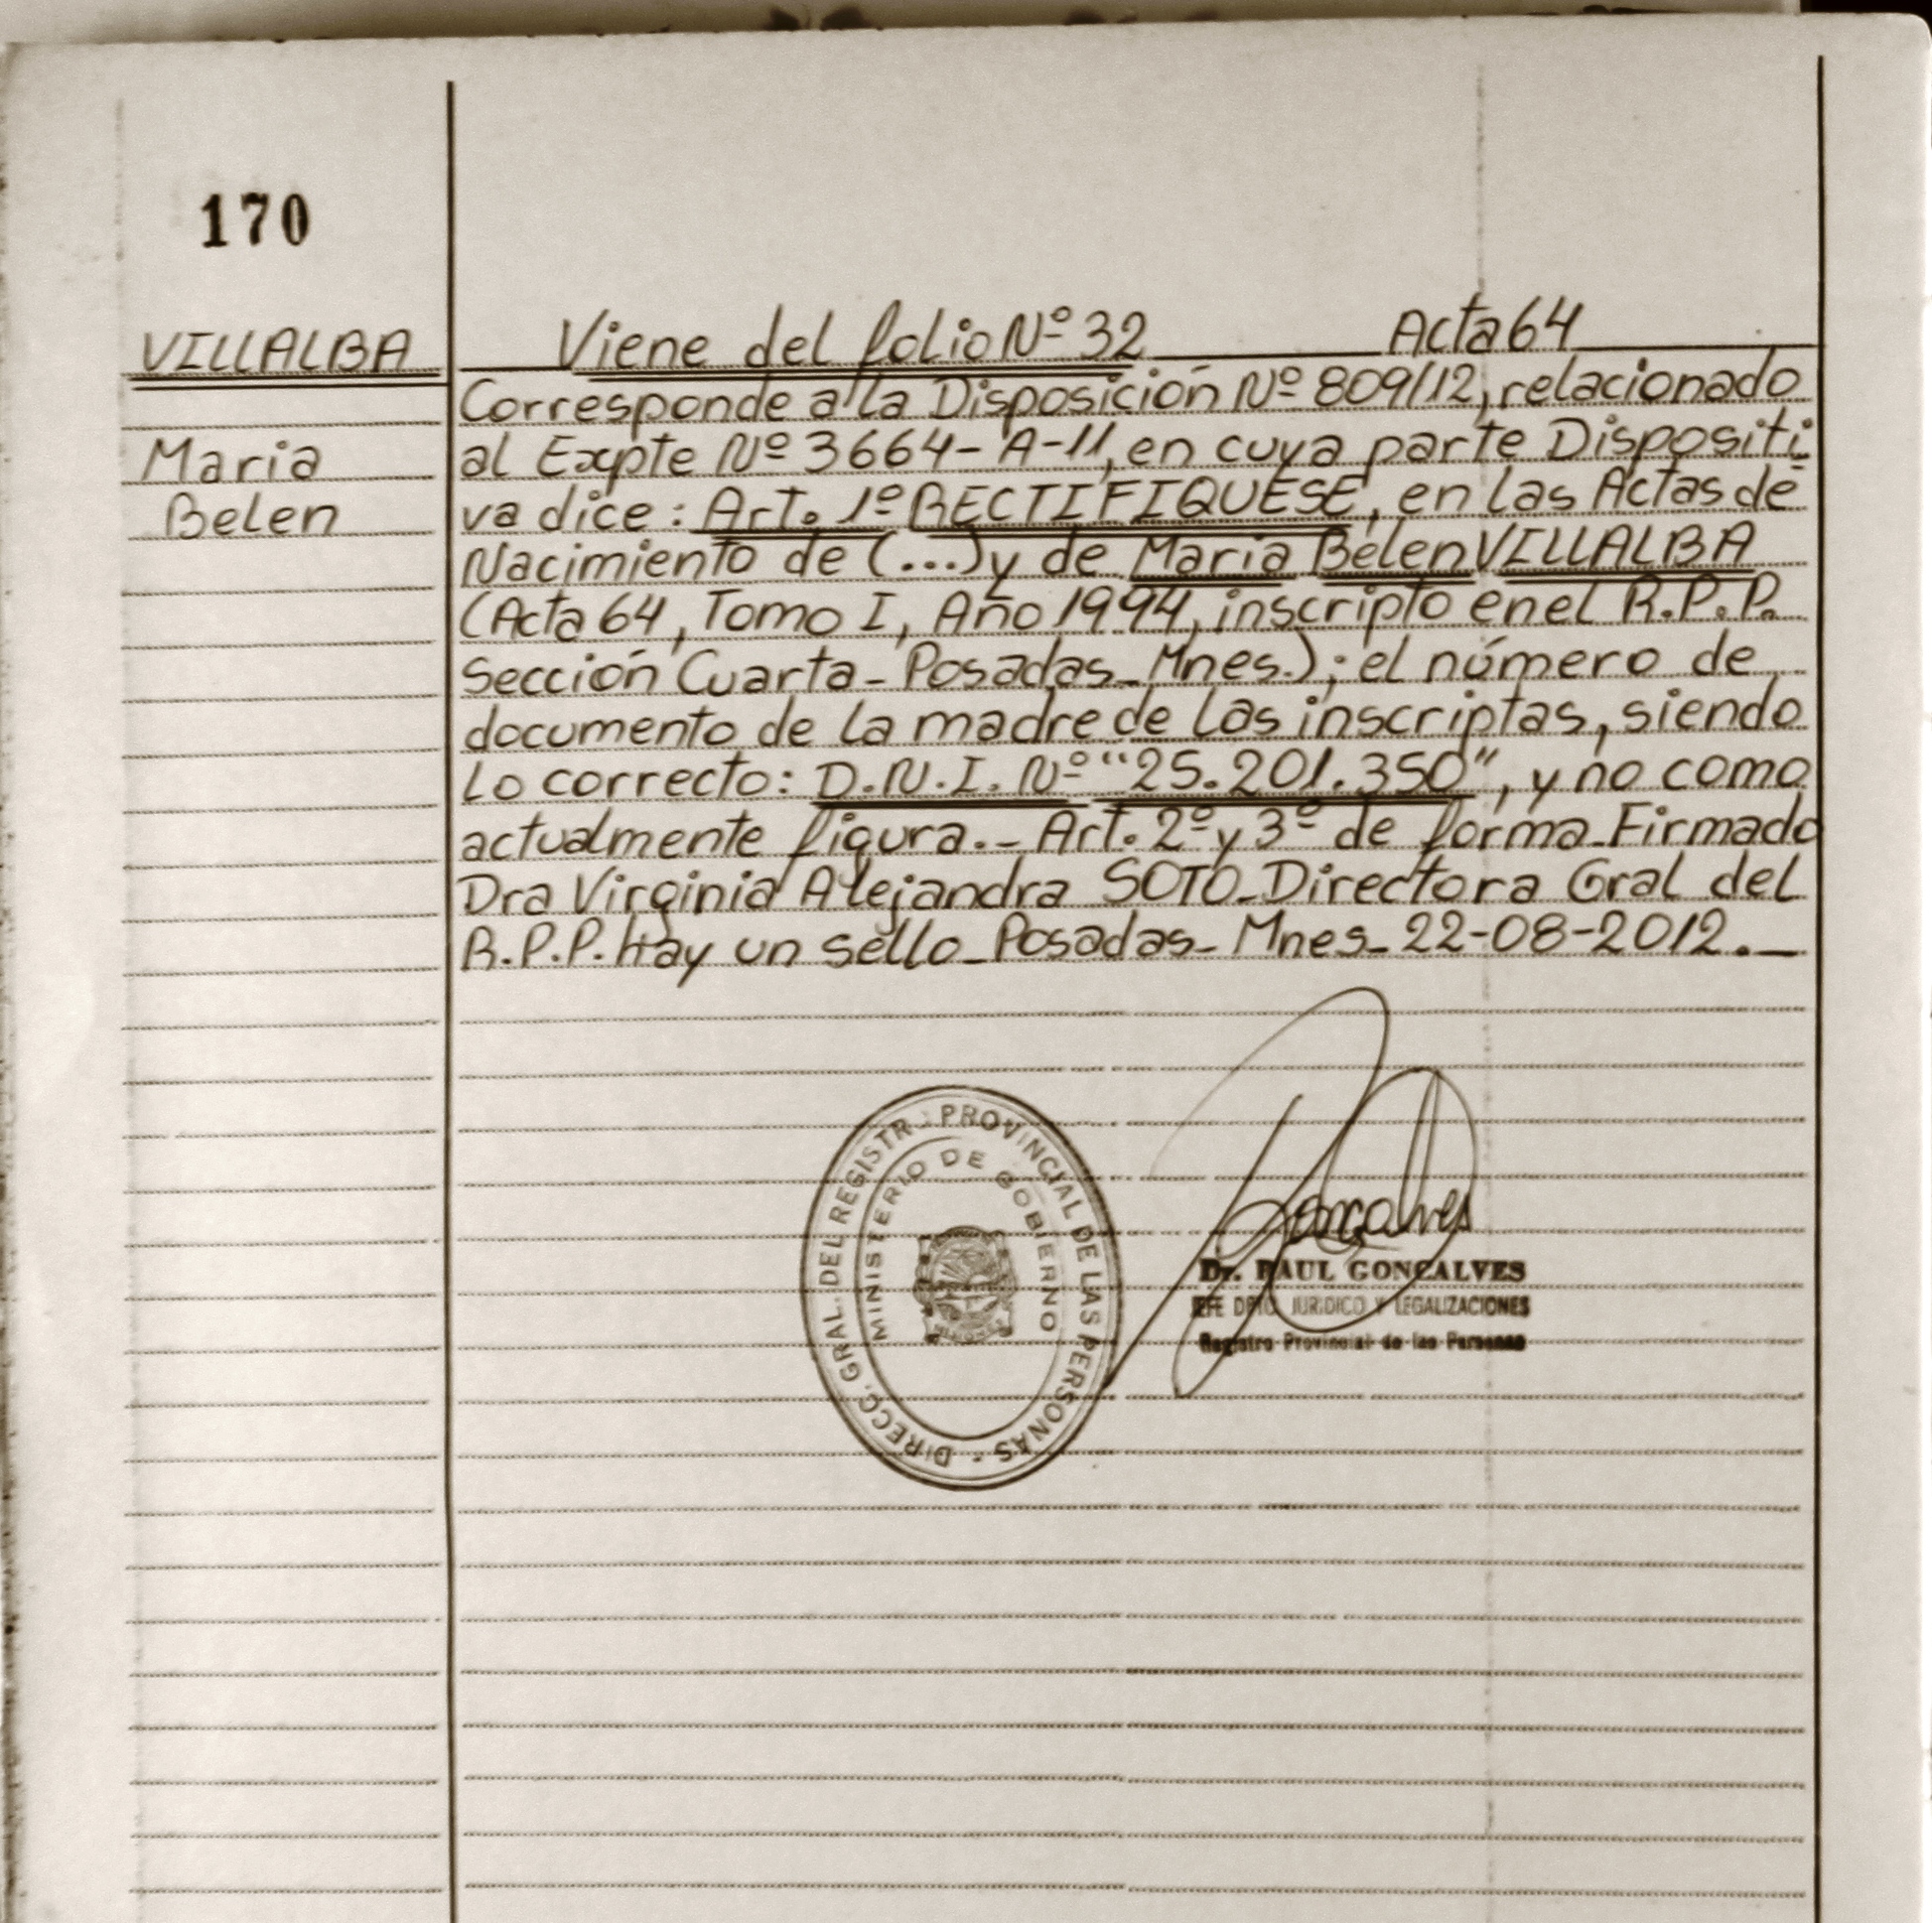 170
VILLALBA
Maria
Belen
Viene del folio Nº 32 Acta 64
Corresponde a la Disposición Nº 809/12, relacionado
al Expte Nº 3664-A-11, en cuya parte Dispositi
va dice: Art. 1º RECTIFIQUESE, en las Actas de
Nacimiento de (...) y de Maria Belen VILLALBA
(Acta 64, Tomo I, Año 1994, inscripto en el R.P.P.
Sección Cuarta - Posadas - Mnes.); el número de
documento de la madre de las inscriptas, siendo
lo correcto: D.N.I. Nº "25.201.350", y no como
actualmente figura.- Art. 2º y 3º de forma - Firmado
Dra Virginia Alejandra SOTO - Directora Gral del
R.P.P. Hay un sello - Posadas - Mnes - 22-08-2012.-
DIRECC. GRAL. DEL REGISTRO PROVINCIAL DE LAS PERSONAS -
MINISTERIO DE GOBIERNO
Gonçalves
Dr. RAUL GONÇALVES
JEFE DPTO. JURIDICO Y LEGALIZACIONES
Registro Provincial de las Personas